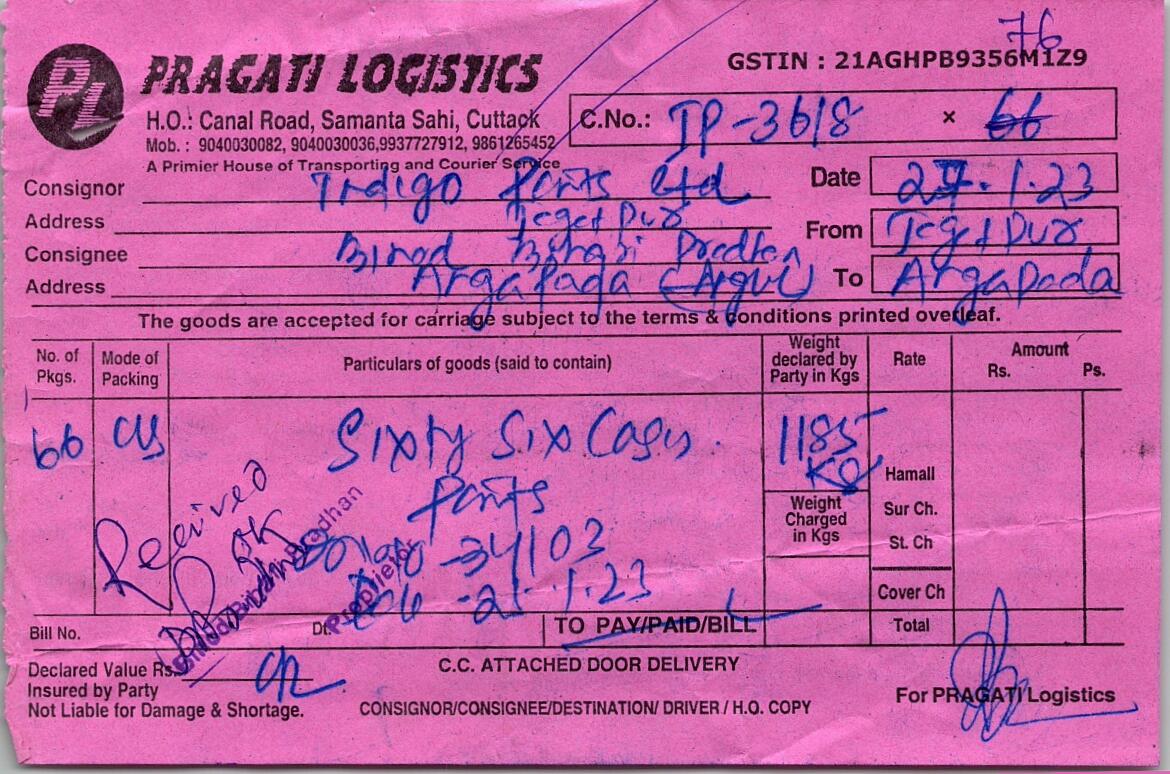 76
PL PRAGATI LOGISTICS
GSTIN : 21AGHPB9356M1Z9
H.O.: Canal Road, Samanta Sahi, Cuttack
C.No.: IP-3618 × 66
Mob. : 9040030082, 9040030036,9937727912, 9861265452
A Primier House of Transporting and Courier Service
Consignor Indigo Paints Ltd
Date 27.1.23
Address Jagatpur
From Jagatpur
Consignee Binod Bihari Pradhan
Address Argapada (Argul)
To Argapada
The goods are accepted for carriage subject to the terms & conditions printed overleaf.
No. of Pkgs. Mode of Packing Particulars of goods (said to contain) Weight declared by Party in Kgs Rate Amount Rs. Ps.
66 C/S Sixty Six Cases. 1185 KG
Paints
Hamall
Weight Charged in Kgs
Sur Ch.
St. Ch
Received
34103
Cover Ch
25.1.23
Binod Bihari Pradhan
Proprietor
Bill No. Dt. TO PAY/PAID/BILL Total
Declared Value Rs.
C.C. ATTACHED DOOR DELIVERY
Insured by Party
Not Liable for Damage & Shortage.
CONSIGNOR/CONSIGNEE/DESTINATION/ DRIVER / H.O. COPY
For PRAGATI Logistics